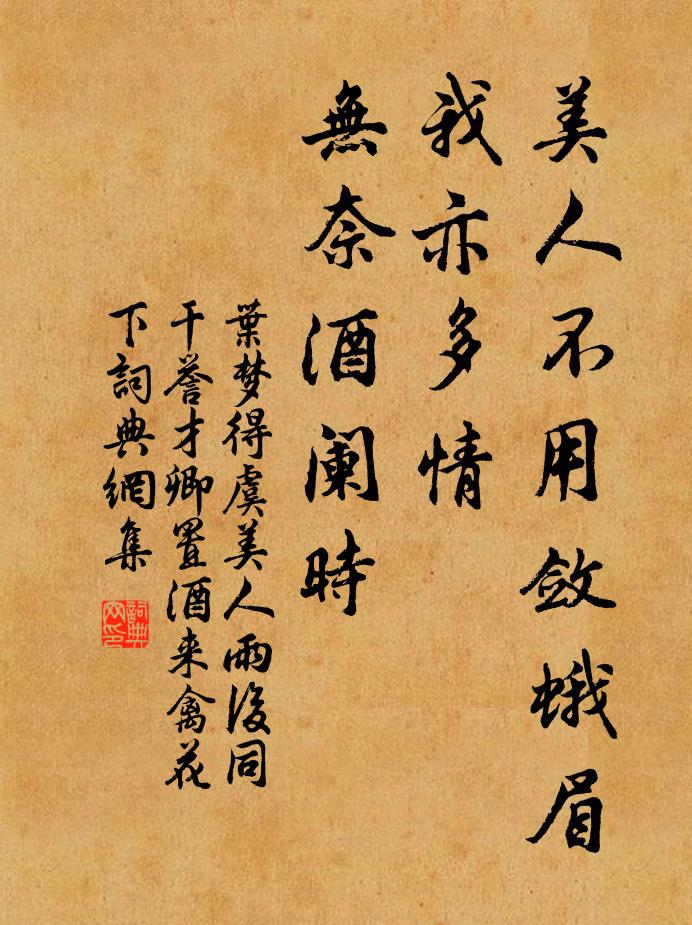 美人不用敛蛾眉
我亦多情
無奈酒阑時
葉梦得虞美人雨後同
干誉才卿置酒来禽花
下詞典網集
詞典网印